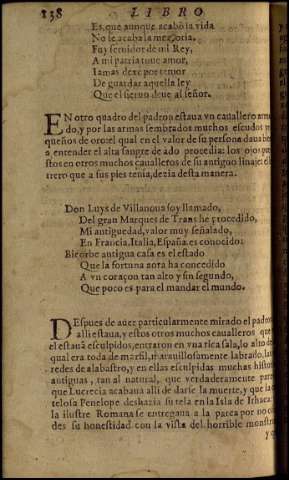 138 LIBRO
Es, que aunque acabò la vida
No se acaba la memoria.
Fuy seruidor de mi Rey,
A mi patria tuue amor,
Iamas dexè por temor
De guardar aquella ley
Que el sieruo deue al señor.
EN otro quadro del padron estaua vn cauallero arma
do, y por las armas sembrados muchos escudos pe
queños de oro: el qual en el valor de su persona daua bien
a entender el alta sangre de adò procedia: los ojos pues
tos en otros muchos caualleros de su antiguo linaje: el le
trero que a sus pies tenia, dezia desta manera.
Don Luys de Villanoua soy llamado,
Del gran Marques de Trans he procedido,
Mi antiguedad, valor muy señalado,
En Francia, Italia, España es conocido:
Bicorbe antigua casa es el estado
Que la fortuna aora ha concedido
A vn coraçon tan alto y sin segundo,
Que poco es para el mandar el mundo.
DEspues de auer particularmente mirado el padron
alli estaua, y estos otros muchos caualleros que
el estauã esculpidos, entraron en vna rica sala, lo alto de
qual era toda de marfil, marauillosamente labrado, las
redes de alabastro, y en ellas esculpidas muchas histo
antiguas, tan al natural, que verdaderamente pare
que Lucrecia acabaua alli de darse la muerte, y que la
telosa Penelope deshazia su tela en la Isla de Ithaca:
la ilustre Romana se entregaua a la parca por no o
des su honestidad con la vista del horrible monstro